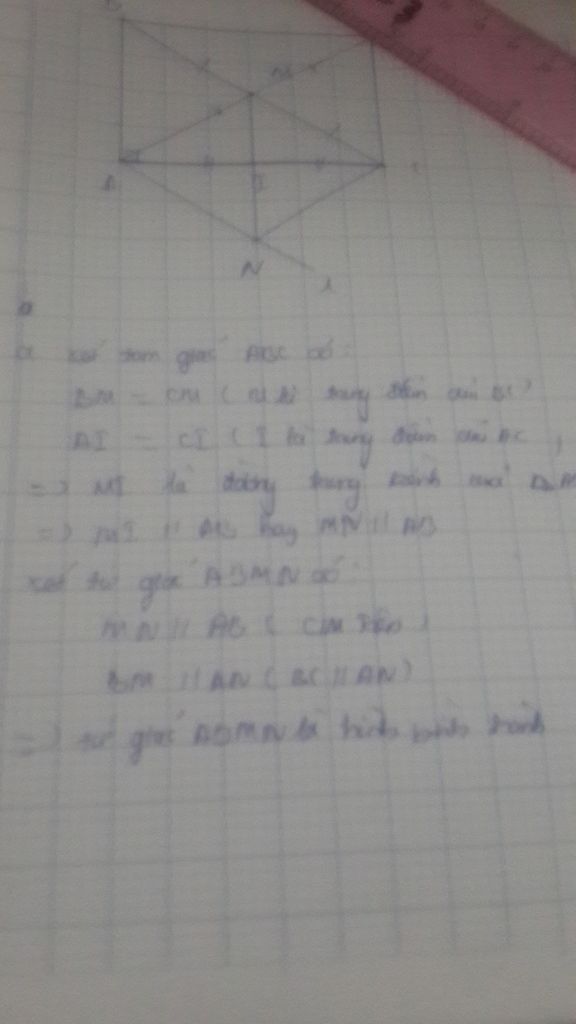 B
M
A
I
N
x
a xét tam giác ABC có:
BM = CM ( M là trung điểm của BC)
AI = CI ( I là trung điểm của AC
=) MI là đường trung bình của
=) MI // AB hay MN // AB
xét tứ giác ABMN có:
MN // AB ( CM trên )
BM // AN ( BC // AN)
=) tứ giác ABMN là hình bình hành